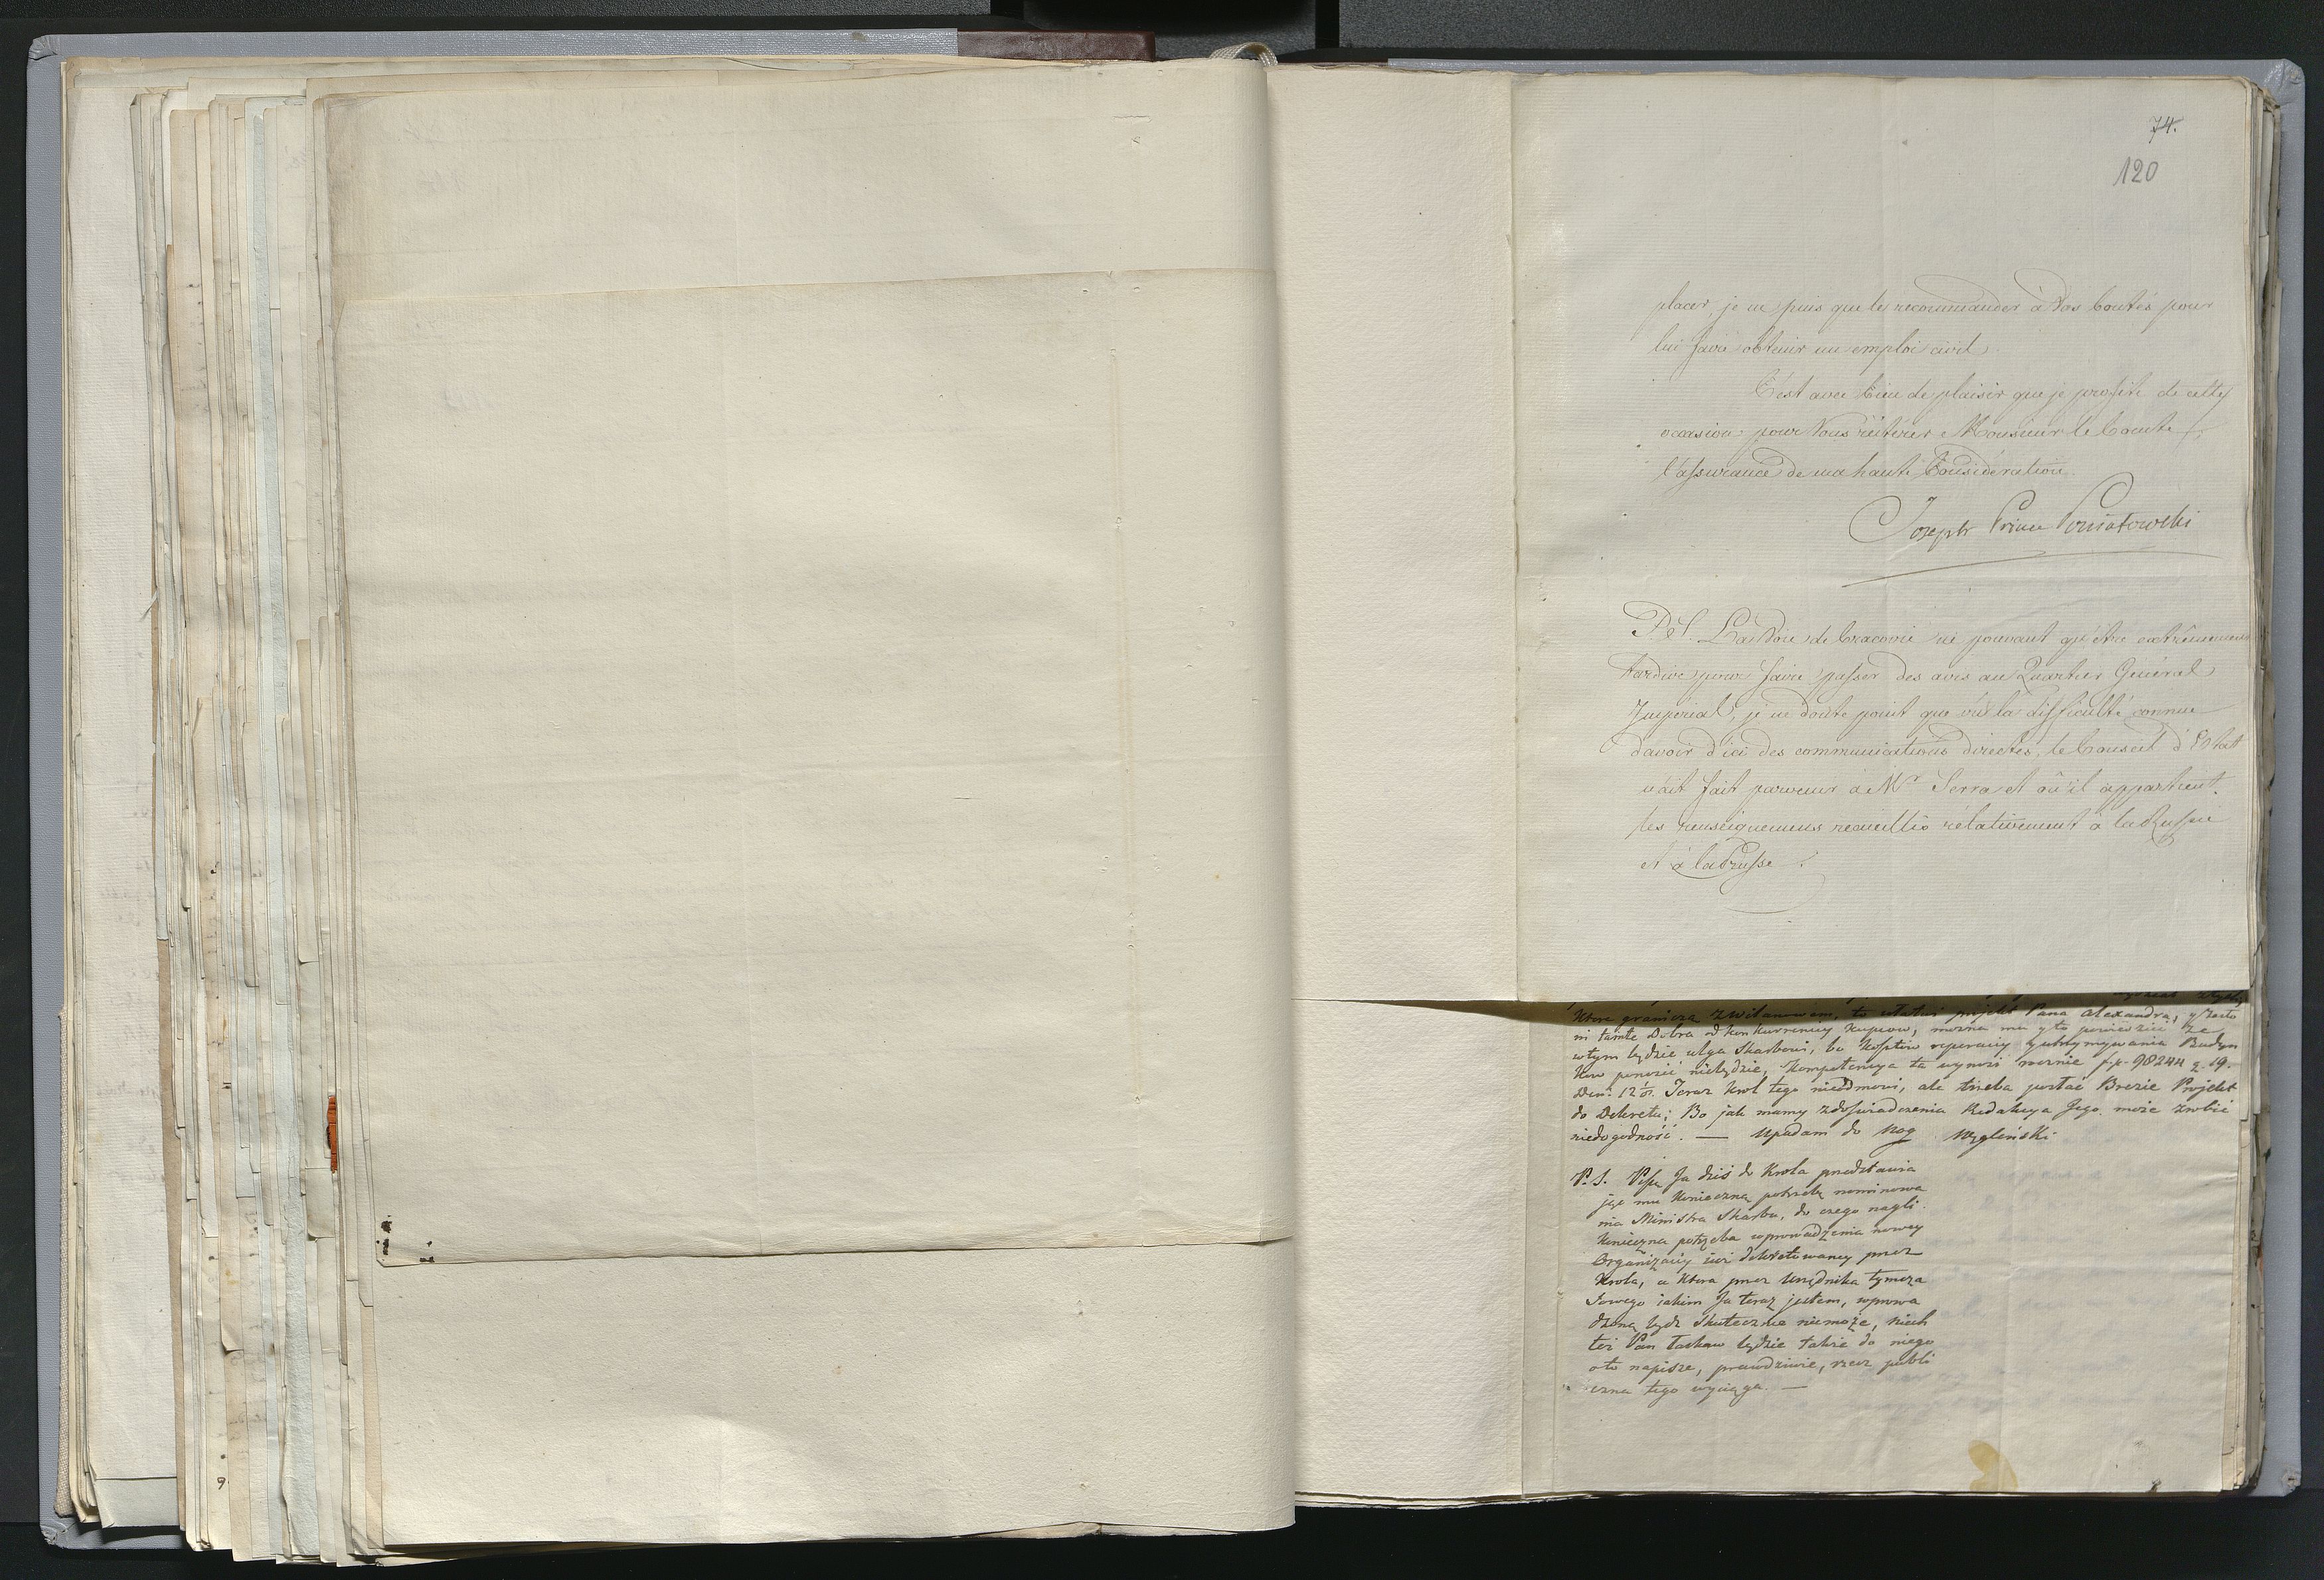 74.
120
placer, je ne puis que le recommander à Vos bontés pour
lui faire obtenir un emploi civil.
C'est avec bien de plaisir que je profite de cette
occasion pour Vous réiterer Monsieur le Comte
l'assurance de ma haute Considération.
Joseph Prince Poniatowski
P.S. La Voie de Cracovie ne pouvant qu'être extrêmement
tardive pour faire passer des avis au Quartier Général
Imperial, je ne doute point que vû la difficulté connue
d'avoir d'ici des communications directes, le Conseil d'Etat
n'ait fait parvenir à Mr Serra et où il appartient
les renseignemens recueillis rélativement à la Russie
et à la Prusse.
które graniczą z Wilanowem, to ostatni projekt Pana Alexandra, y
ni tamte Dobra od konkurrency kupcow, można mu y to powiedzieć że
w tym będzie ulga Skarbowi, bo kosztow reperacyi y utrzymywania Budyn
kow ponosić niebędzie, Kompetencya ta wynosi rocznie 98244 g. 19.
Teraz Krol tego nieodmowi, ale trzeba posłać Brezie Projekt
do Dekretu; Bo jak mamy z doświadczenia Redakcya Jego może zrobić
niedogodność. — Upadam do Nog Węgleński
P.S. Piszę Ja dziś do Krola przedstawia
jąc mu konieczną potrzebę nominowa
nia Ministra Skarbu, do czego nagli
konieczna potrzeba wprowadzenia nowey
Organizacyi już dekretowaney przez
Krola, a ktora przez Urzędnika tymcza
sowego iakim Ja teraz jestem, wprowa
dzoną bydź skutecznie niemoże, niech
też Pan łaskaw będzie także do niego
o to napisze, prawdziwie, rzecz publi
czna tego wyciąga. —
9